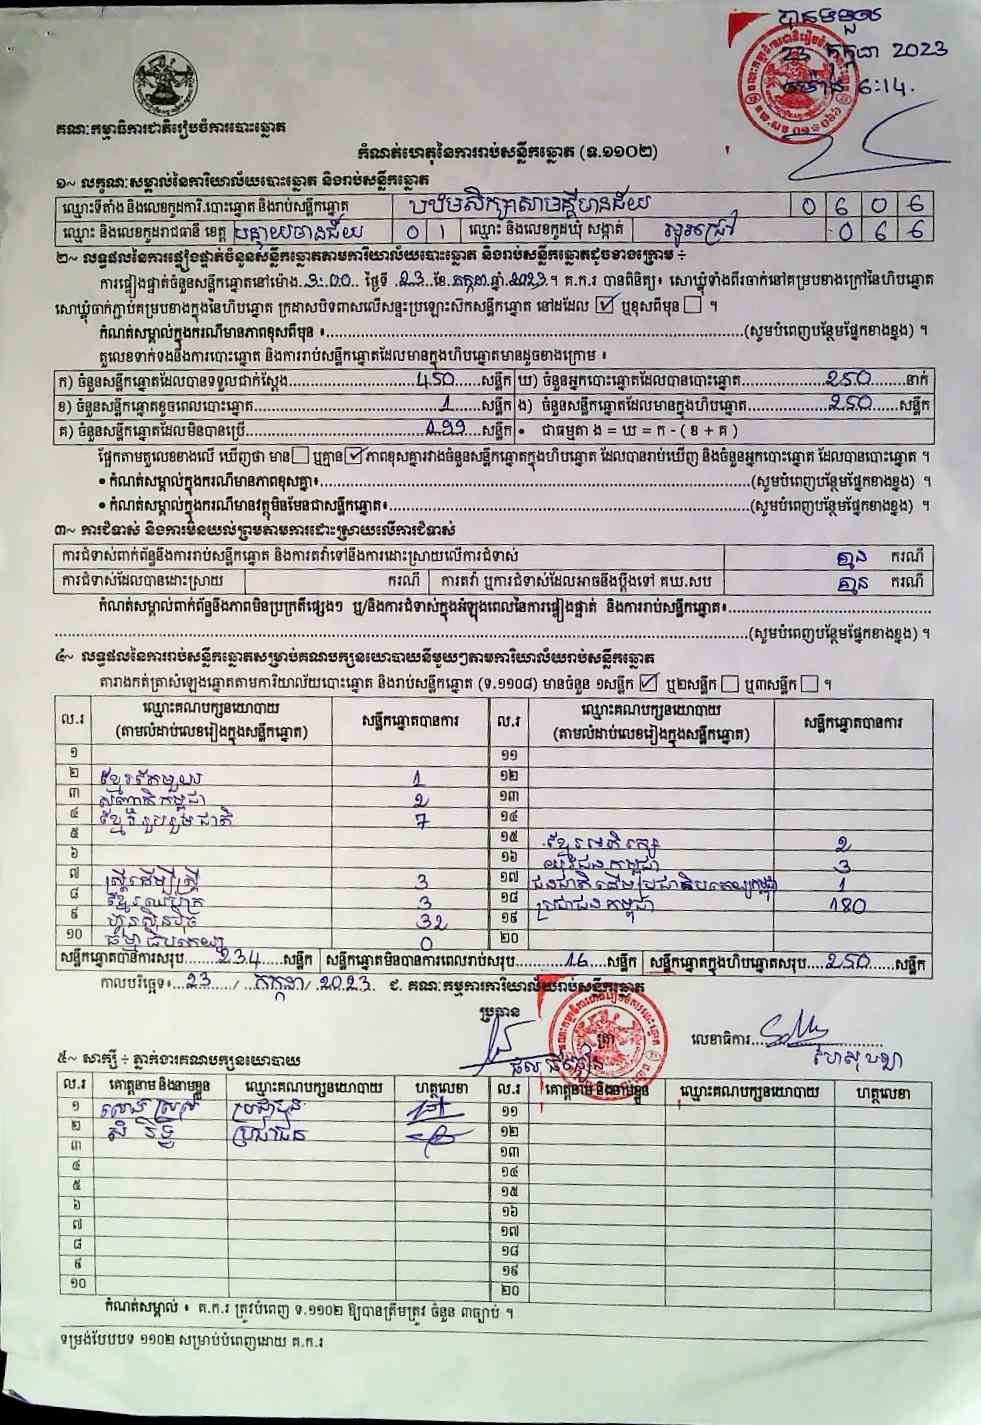 បានទទួល
23 កក្កដា 2023
ម៉ោង 6:14.
គណៈកម្មាធិការជាតិរៀបចំការបោះឆ្នោត
កំណត់ហេតុនៃការរាប់សន្លឹកឆ្នោត (ទ.១១០២)
១~ លក្ខណៈសម្គាល់នៃការិយាល័យបោះឆ្នោត និងរាប់សន្លឹកឆ្នោត
ឈ្មោះទីតាំង និងលេខកូដការិ.បោះឆ្នោត និងរាប់សន្លឹកឆ្នោត បឋមសិក្សាសាមគ្គីមានជ័យ 0 6 0 6
ឈ្មោះ និងលេខកូដរាជធានី ខេត្ត បន្ទាយមានជ័យ 0 1 ឈ្មោះ និងលេខកូដឃុំ សង្កាត់ អូរជ្រៅ 0 6 6
២~ លទ្ធផលនៃការផ្ទៀងផ្ទាត់ចំនួនសន្លឹកឆ្នោតតាមការិយាល័យបោះឆ្នោត និងរាប់សន្លឹកឆ្នោតដូចខាងក្រោម ÷
ការផ្ទៀងផ្ទាត់ចំនួនសន្លឹកឆ្នោតនៅម៉ោង 3:00 ថ្ងៃទី 23 ខែ កក្កដា ឆ្នាំ 2023 ។ គ.ក.រ បានពិនិត្យ៖ សោឃ្លុំទាំងពីរចាក់នៅគម្របខាងក្រៅនៃហិបឆ្នោត
សោឃ្លុំចាក់ភ្ជាប់គម្របខាងក្នុងនៃហិបឆ្នោត ក្រដាសបិទពាសលើសន្ទះប្រឡោះសិកសន្លឹកឆ្នោត នៅដដែល ☑ ឬខុសពីមុន ☐ ។
កំណត់សម្គាល់ក្នុងករណីមានភាពខុសពីមុន ៖ (សូមបំពេញបន្ថែមផ្នែកខាងខ្នង) ។
តួលេខទាក់ទងនឹងការបោះឆ្នោត និងការរាប់សន្លឹកឆ្នោតដែលមានក្នុងហិបឆ្នោតមានដូចខាងក្រោម ៖
ក) ចំនួនសន្លឹកឆ្នោតដែលបានទទួលជាក់ស្តែង 450 សន្លឹក ឃ) ចំនួនអ្នកបោះឆ្នោតដែលបានបោះឆ្នោត 250 នាក់
ខ) ចំនួនសន្លឹកឆ្នោតខូចពេលបោះឆ្នោត 1 សន្លឹក ង) ចំនួនសន្លឹកឆ្នោតដែលមានក្នុងហិបឆ្នោត 250 សន្លឹក
គ) ចំនួនសន្លឹកឆ្នោតដែលមិនបានប្រើ 199 សន្លឹក • ជាធម្មតា ង = ឃ = ក - ( ខ + គ )
ផ្អែកតាមតួលេខខាងលើ ឃើញថា មាន ☐ ឬគ្មាន ☑ ភាពខុសគ្នារវាងចំនួនសន្លឹកឆ្នោតក្នុងហិបឆ្នោត ដែលបានរាប់ឃើញ និងចំនួនអ្នកបោះឆ្នោត ដែលបានបោះឆ្នោត ។
• កំណត់សម្គាល់ក្នុងករណីមានភាពខុសគ្នា៖ (សូមបំពេញបន្ថែមផ្នែកខាងខ្នង) ។
• កំណត់សម្គាល់ក្នុងករណីមានវត្ថុមិនមែនជាសន្លឹកឆ្នោត៖ (សូមបំពេញបន្ថែមផ្នែកខាងខ្នង) ។
៣~ ការជំទាស់ និងការមិនយល់ព្រមតាមការដោះស្រាយលើការជំទាស់
ការជំទាស់ពាក់ព័ន្ធនឹងការរាប់សន្លឹកឆ្នោត និងការតវ៉ាទៅនឹងការដោះស្រាយលើការជំទាស់ គ្មាន ករណី
ការជំទាស់ដែលបានដោះស្រាយ ករណី ការតវ៉ា ឬការជំទាស់ដែលអាចនឹងប្តឹងទៅ គឃ.សប គ្មាន ករណី
កំណត់សម្គាល់ពាក់ព័ន្ធនឹងភាពមិនប្រក្រតីផ្សេងៗ ឬ/និងការជំទាស់ក្នុងអំឡុងពេលនៃការផ្ទៀងផ្ទាត់ និងការរាប់សន្លឹកឆ្នោត៖
(សូមបំពេញបន្ថែមផ្នែកខាងខ្នង) ។
៤~ លទ្ធផលនៃការរាប់សន្លឹកឆ្នោតសម្រាប់គណបក្សនយោបាយនីមួយៗតាមការិយាល័យរាប់សន្លឹកឆ្នោត
តារាងកត់ត្រាសំឡេងឆ្នោតតាមការិយាល័យបោះឆ្នោត និងរាប់សន្លឹកឆ្នោត (ទ.១១០៨) មានចំនួន ១សន្លឹក ☑ ឬ២សន្លឹក ☐ ឬ៣សន្លឹក ☐ ។
ល.រ ឈ្មោះគណបក្សនយោបាយ (តាមលំដាប់លេខរៀងក្នុងសន្លឹកឆ្នោត) សន្លឹកឆ្នោតបានការ ល.រ ឈ្មោះគណបក្សនយោបាយ (តាមលំដាប់លេខរៀងក្នុងសន្លឹកឆ្នោត) សន្លឹកឆ្នោតបានការ
១ ១១
២ ខ្មែរតែមួយ 1 ១២
៣ សញ្ជាតិកម្ពុជា 2 ១៣
៤ ខ្មែររួបរួមជាតិ 7 ១៤
៥ ១៥ ខ្មែរអភិរក្ស 2
៦ ១៦ យុវជនកម្ពុជា 3
៧ ស្ត្រីដើម្បីស្ត្រី 3 ១៧ ជនជាតិដើមប្រជាធិបតេយ្យកម្ពុជា 1
៨ 3 ១៨ ប្រជាជនកម្ពុជា 180
៩ ហ្វ៊ុនស៊ិនប៉ិច 32 ១៩
១០ ធម្មាធិបតេយ្យ 0 ២០
សន្លឹកឆ្នោតបានការសរុប 234 សន្លឹក សន្លឹកឆ្នោតមិនបានការពេលរាប់សរុប 16 សន្លឹក សន្លឹកឆ្នោតក្នុងហិបឆ្នោតសរុប 250 សន្លឹក
កាលបរិច្ឆេទ៖ 23 / កក្កដា / 2023 ជ. គណៈកម្មការការិយាល័យរាប់សន្លឹកឆ្នោត
ប្រធាន
ត្រា លេខាធិការ
៥~ សាក្សី ÷ ភ្នាក់ងារគណបក្សនយោបាយ
ល.រ គោត្តនាម និងនាមខ្លួន ឈ្មោះគណបក្សនយោបាយ ហត្ថលេខា ល.រ គោត្តនាម និងនាមខ្លួន ឈ្មោះគណបក្សនយោបាយ ហត្ថលេខា
១ ប្រជាជន ១១
២ សិ រិទ្ធី ប្រជាជន ១២
៣ ១៣
៤ ១៤
៥ ១៥
៦ ១៦
៧ ១៧
៨ ១៨
៩ ១៩
១០ ២០
កំណត់សម្គាល់ ៖ គ.ក.រ ត្រូវបំពេញ ទ.១១០២ ឱ្យបានត្រឹមត្រូវ ចំនួន ៣ច្បាប់ ។
ទម្រង់បែបបទ ១១០២ សម្រាប់បំពេញដោយ គ.ក.រ